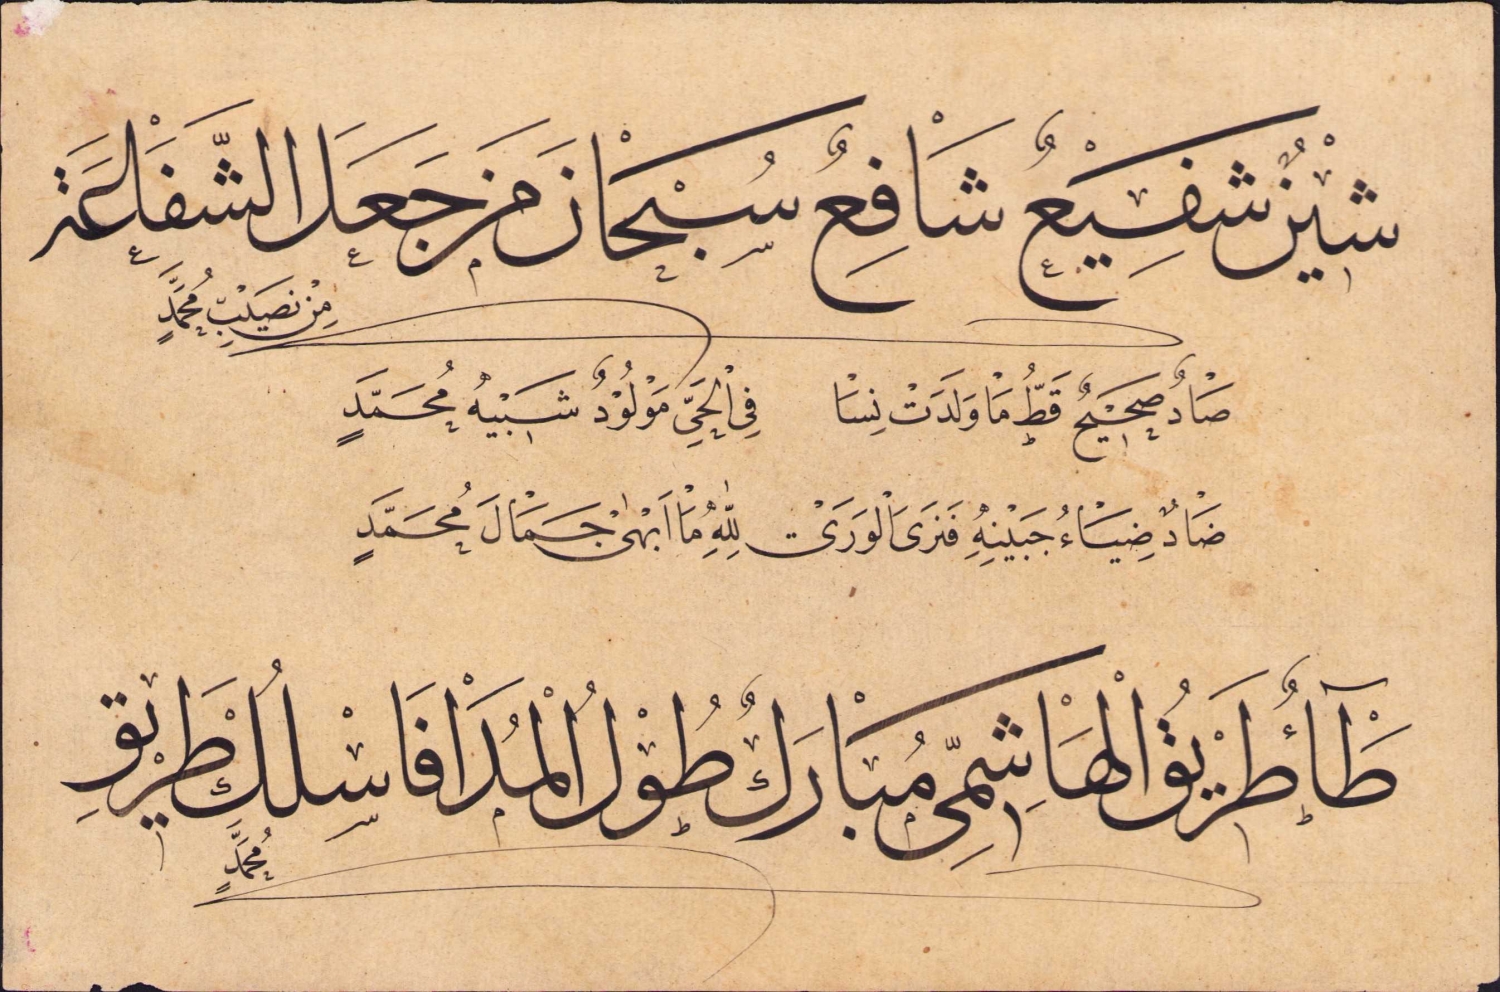 شِيْنٌ شَفِيْعٌ شَافِعٌ سُبْحَانَ مَنْ جَعَلَ الشَّفَاعَةَ
مِنْ نَصِيْبِ مُحَمَّدٍ
صَادٌ صَحِيْحٌ قَطُّ مَا وَلَدَتْ نِسَا فِي الْحَيِّ مَوْلُوْدٌ شَبِيْهُ مُحَمَّدٍ
ضَادٌ ضِيَاءُ جَبِيْنِهِ فَنَرَى الْوَرَى لِلّٰهِ مَا اَبْهٰى جَمَالَ مُحَمَّدٍ
طَآءٌ طَرِيْقُ الْهَاشِمِيِّ مُبَارَكٌ طُوْلُ الْمُدَا فَاسْلُكْ طَرِيْقِ
مُحَمَّدٍ